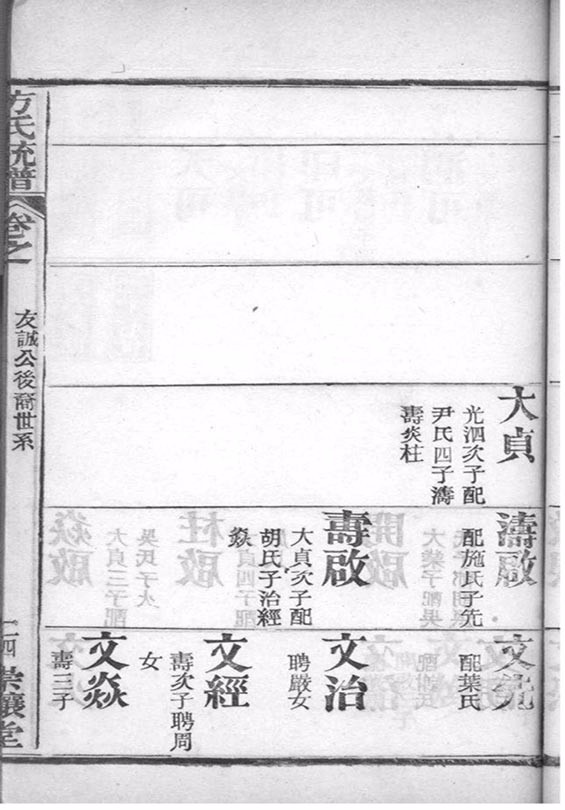 大貞
光泗次子配
尹氏四子濤
壽焱柱
濤啟
配施氏子先
壽啟
大貞次子配
胡氏子治經
焱
文先
配葉氏
文治
聘嚴女
文經
壽次子聘周
女
文焱
壽三子
方氏統譜
卷之一
友誠公後裔世系
二四
崇讓堂